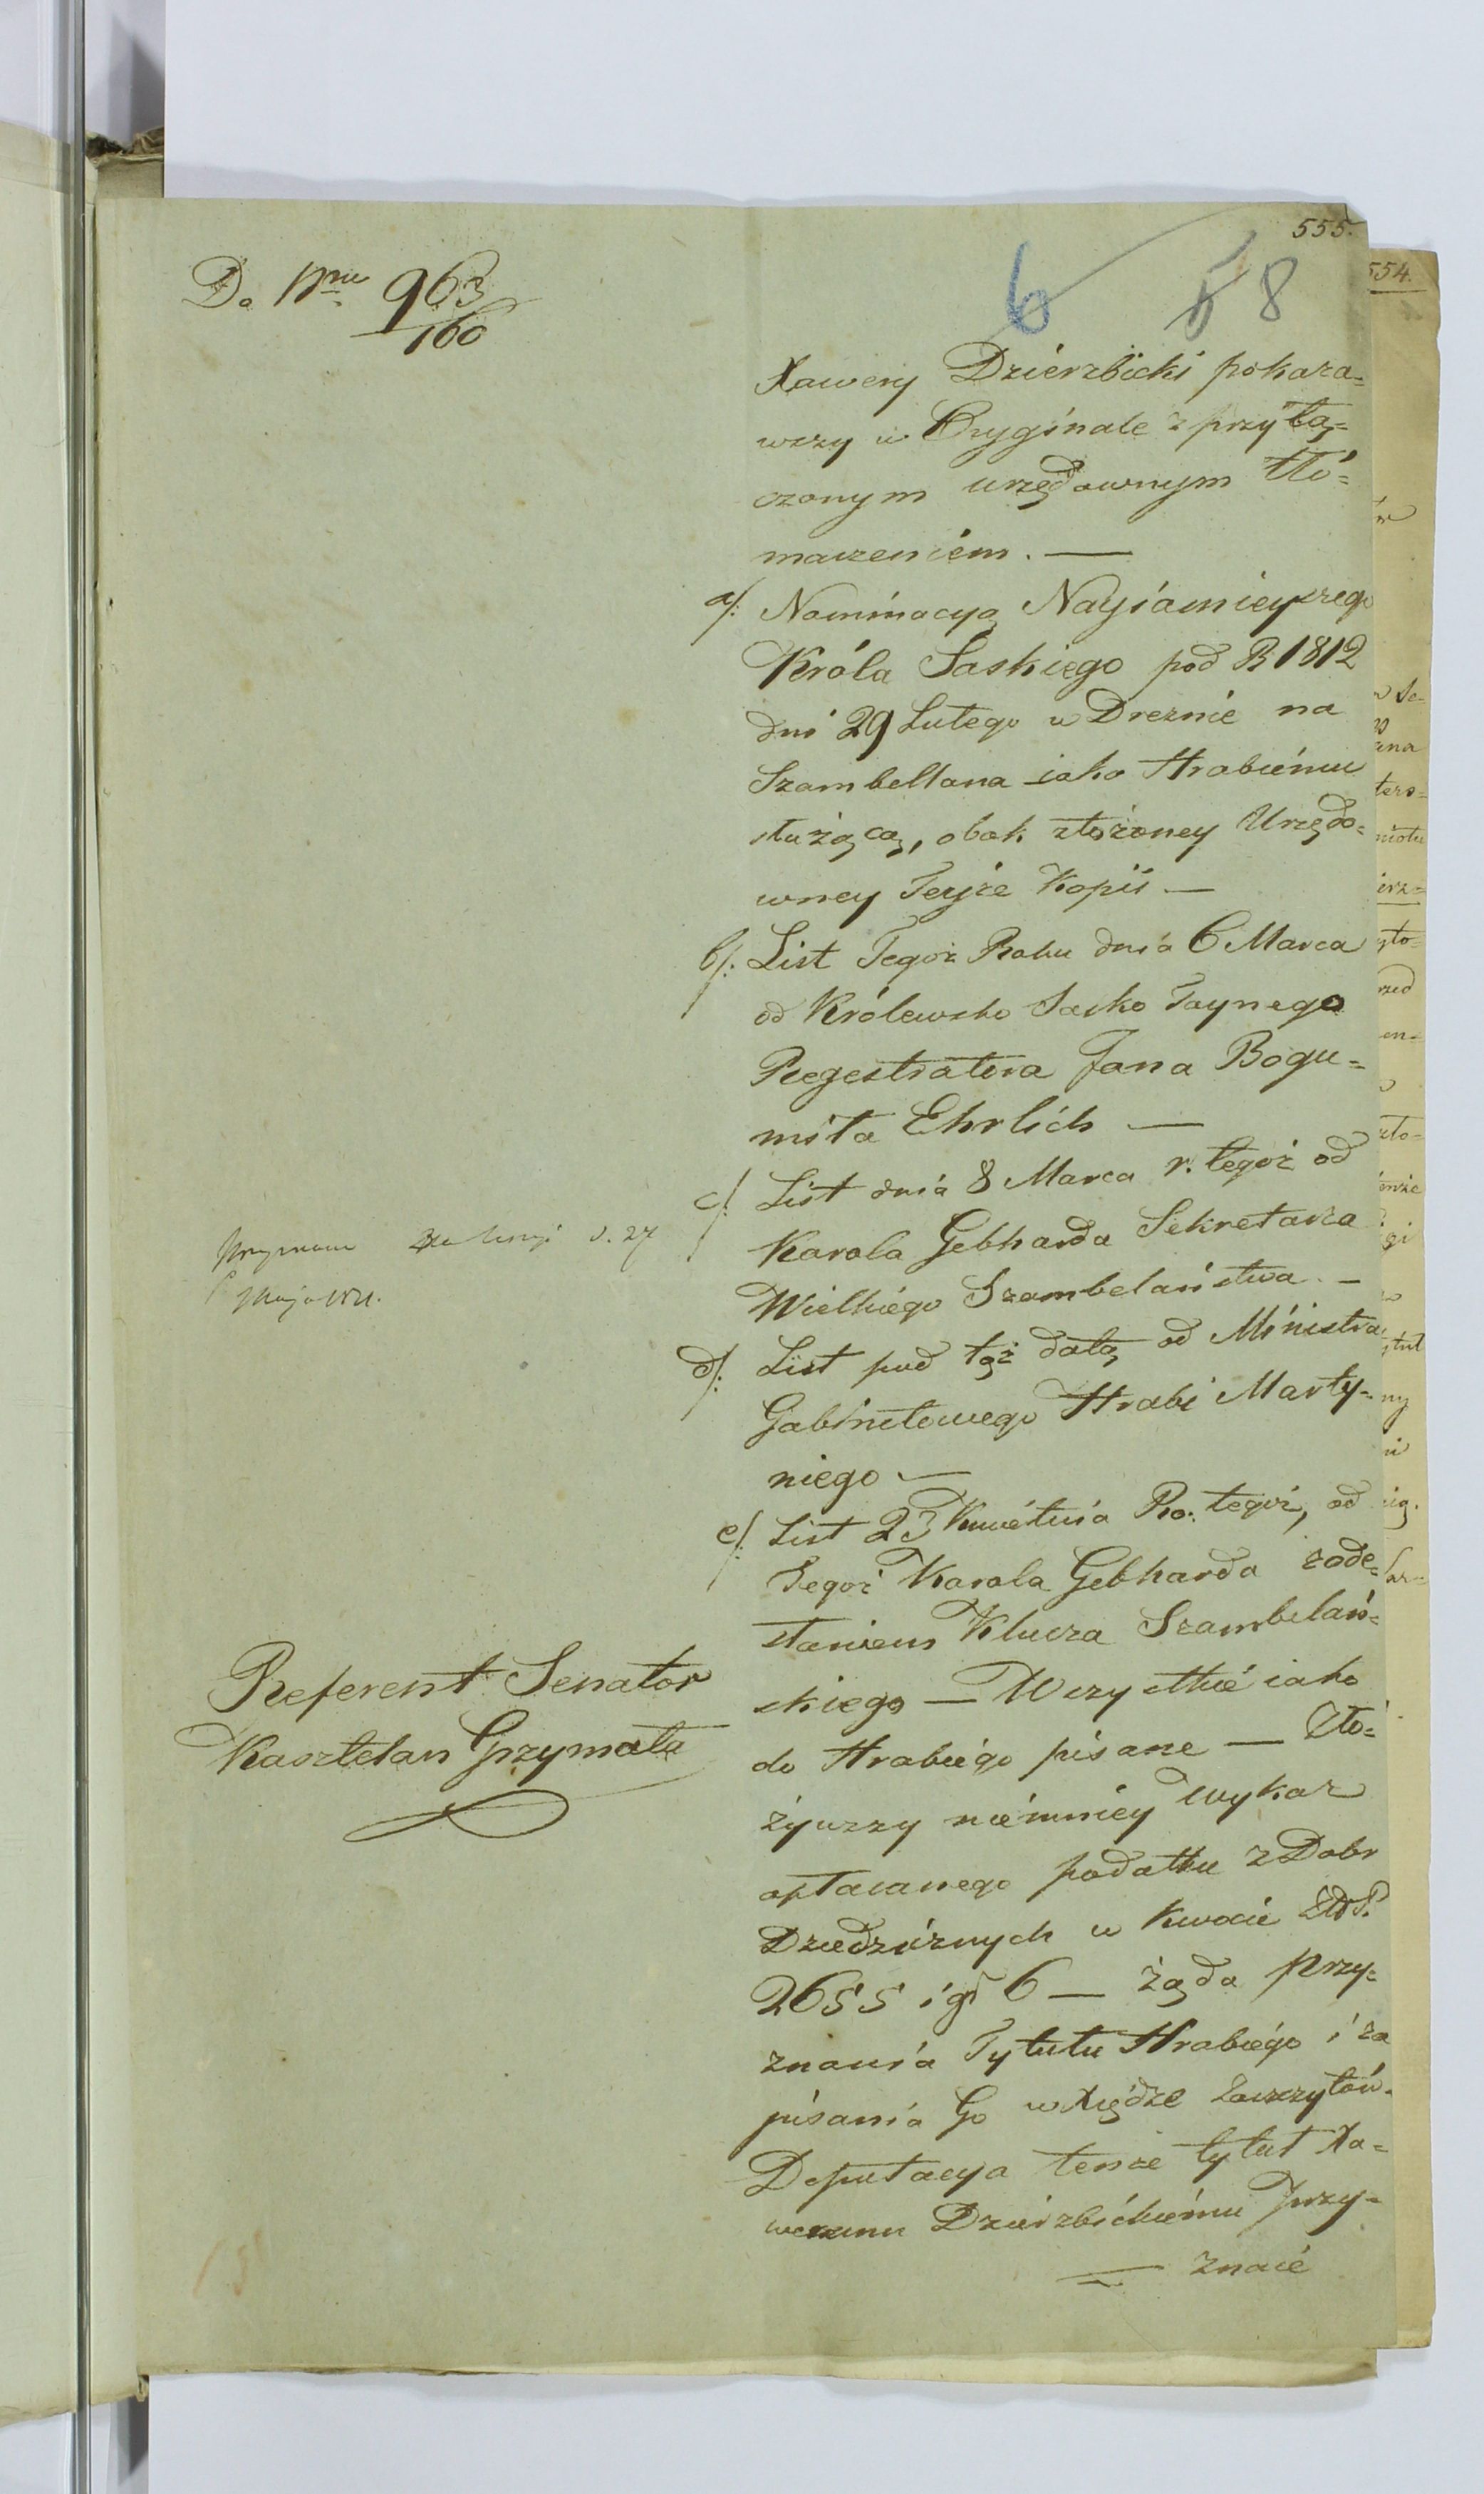 555.
554.
6 8
Do Nru 963
160
Xawery Dzierzbicki pokaza=
wszy w Oryginale z przyłą=
czonym urzędownym tłó=
maczeniem. —
a/: Nominacyą Nayiaśnieyszego
Króla Saskiego pod R 1812
dni 29 Lutego w Dreznie na
Szambellana iako Hrabiemu
służącą, obok złożoney Urzędo=
wney Teyże Kopii —
b/: List Tegoż Roku dnia 6 Marca
od Królewsko Sasko Taynego
Regestratora Jana Bogu=
miła Ehrlich —
c/: List dnia 8 Marca r. tegoż od
Karola Gebharda Sekretarza
Wielkiego Szambelaństwa. —
d/: List pod tąż datą od Ministra
Gabinetowego Hrabi Marty=
niego —
e/: List 23 Kwietnia Ro: tegoż, od
Tegoż Karola Gebharda z ode=
słaniem Klucza Szambelań=
skiego — Wszystkie iako
do Hrabiego pisane — Zło=
żywszy niemniey wykaz
opłacanego podatku z Dobr
Dziedzicznych w kwocie Złt P.
2655 i gr 6 — żąda przy=
znania Tytułu Hrabiego i za
pisania Go w Xiędze Zaszczytów.
Deputacya tenże tytuł Xa=
weremu Dzierzbickiemu przy=
— znaie
d. 27
Maja
Referent Senator
Kasztelan Grzymała